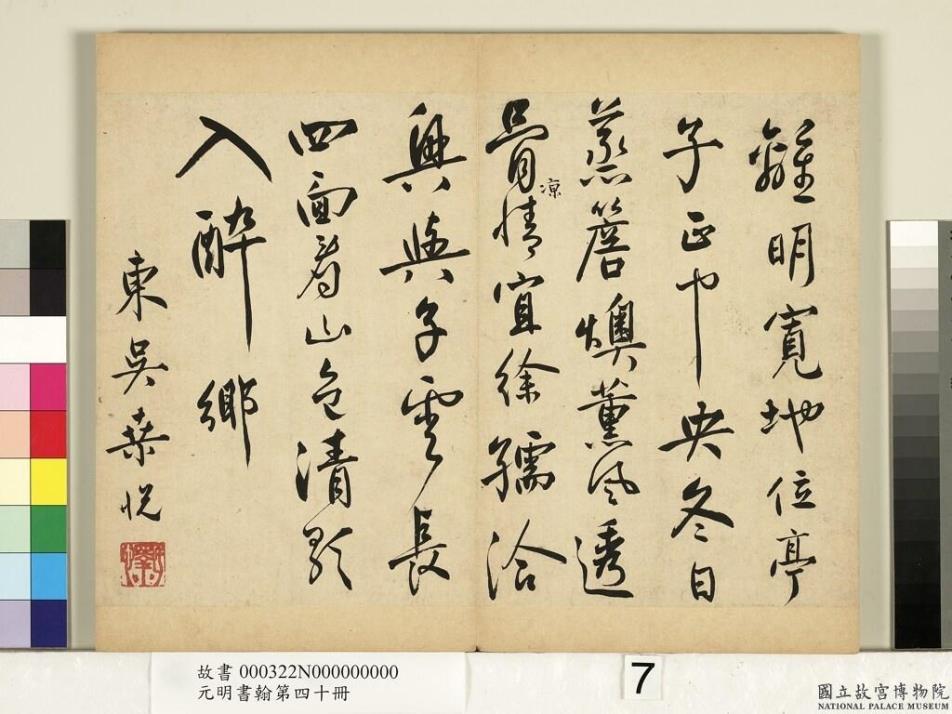 離明寬地位亭
子正中央冬日
蒸簷燠薰風透
骨涼情宜徐孺洽
興與子雲長
四面看山色清歌
入醉鄉
東吳桑悅
故書 000322N000000000
元明書翰第四十冊
7
國立故宮博物院
NATIONAL PALACE MUSEUM